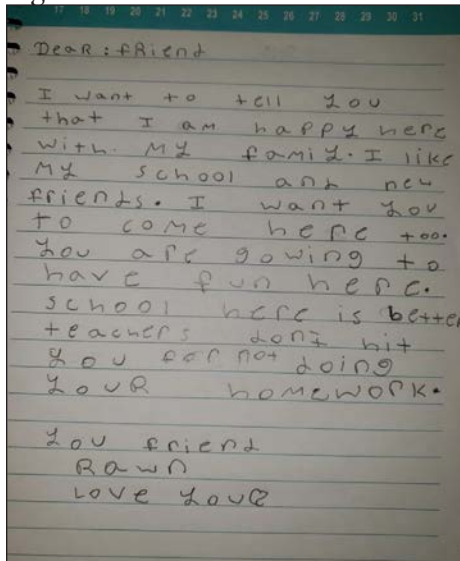 17 18 19 20 21 22 23 24 25 26 27 28 29 30 31
DeaR : fRiend
I want to tell you
that I am happy here
with. My famiy. I like
My school and new
friends. I want you
to come here too.
you are gowing to
have fun here.
school here is better
teachers dont hit
you for not doing
youR homework.
you friend
Rawn
Love you